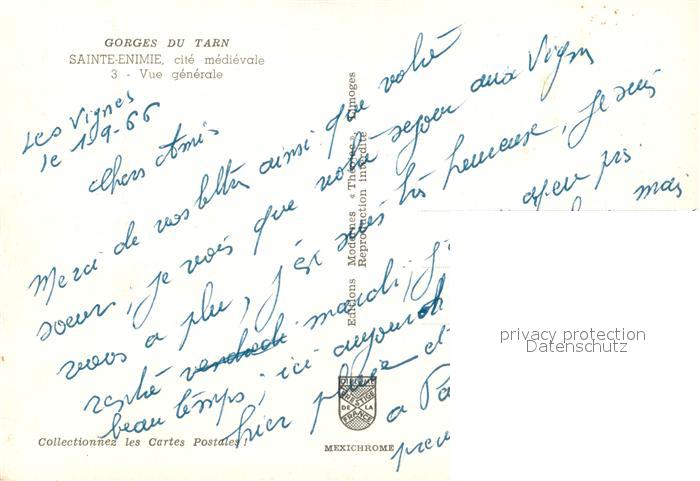 GORGES DU TARN
SAINTE-ENIMIE, cité médiévale
3 - Vue générale
Les Vignes
le 1-9-66
chers Amis
Merci de vos lettres ainsi que votre
soeur, je vois que votre sejour aux Vignes
vous a plu, j'en suis très heureuse, je suis
mardi, j'
mais
beau temps, ici aujourd
hier pluie et
a
Editions Modernes « Théojac », Limoges
Reproduction interdite
PRESTIGE DE LA FRANCE
MEXICHROME
Collectionnez les Cartes Postales !
privacy protection
Datenschutz